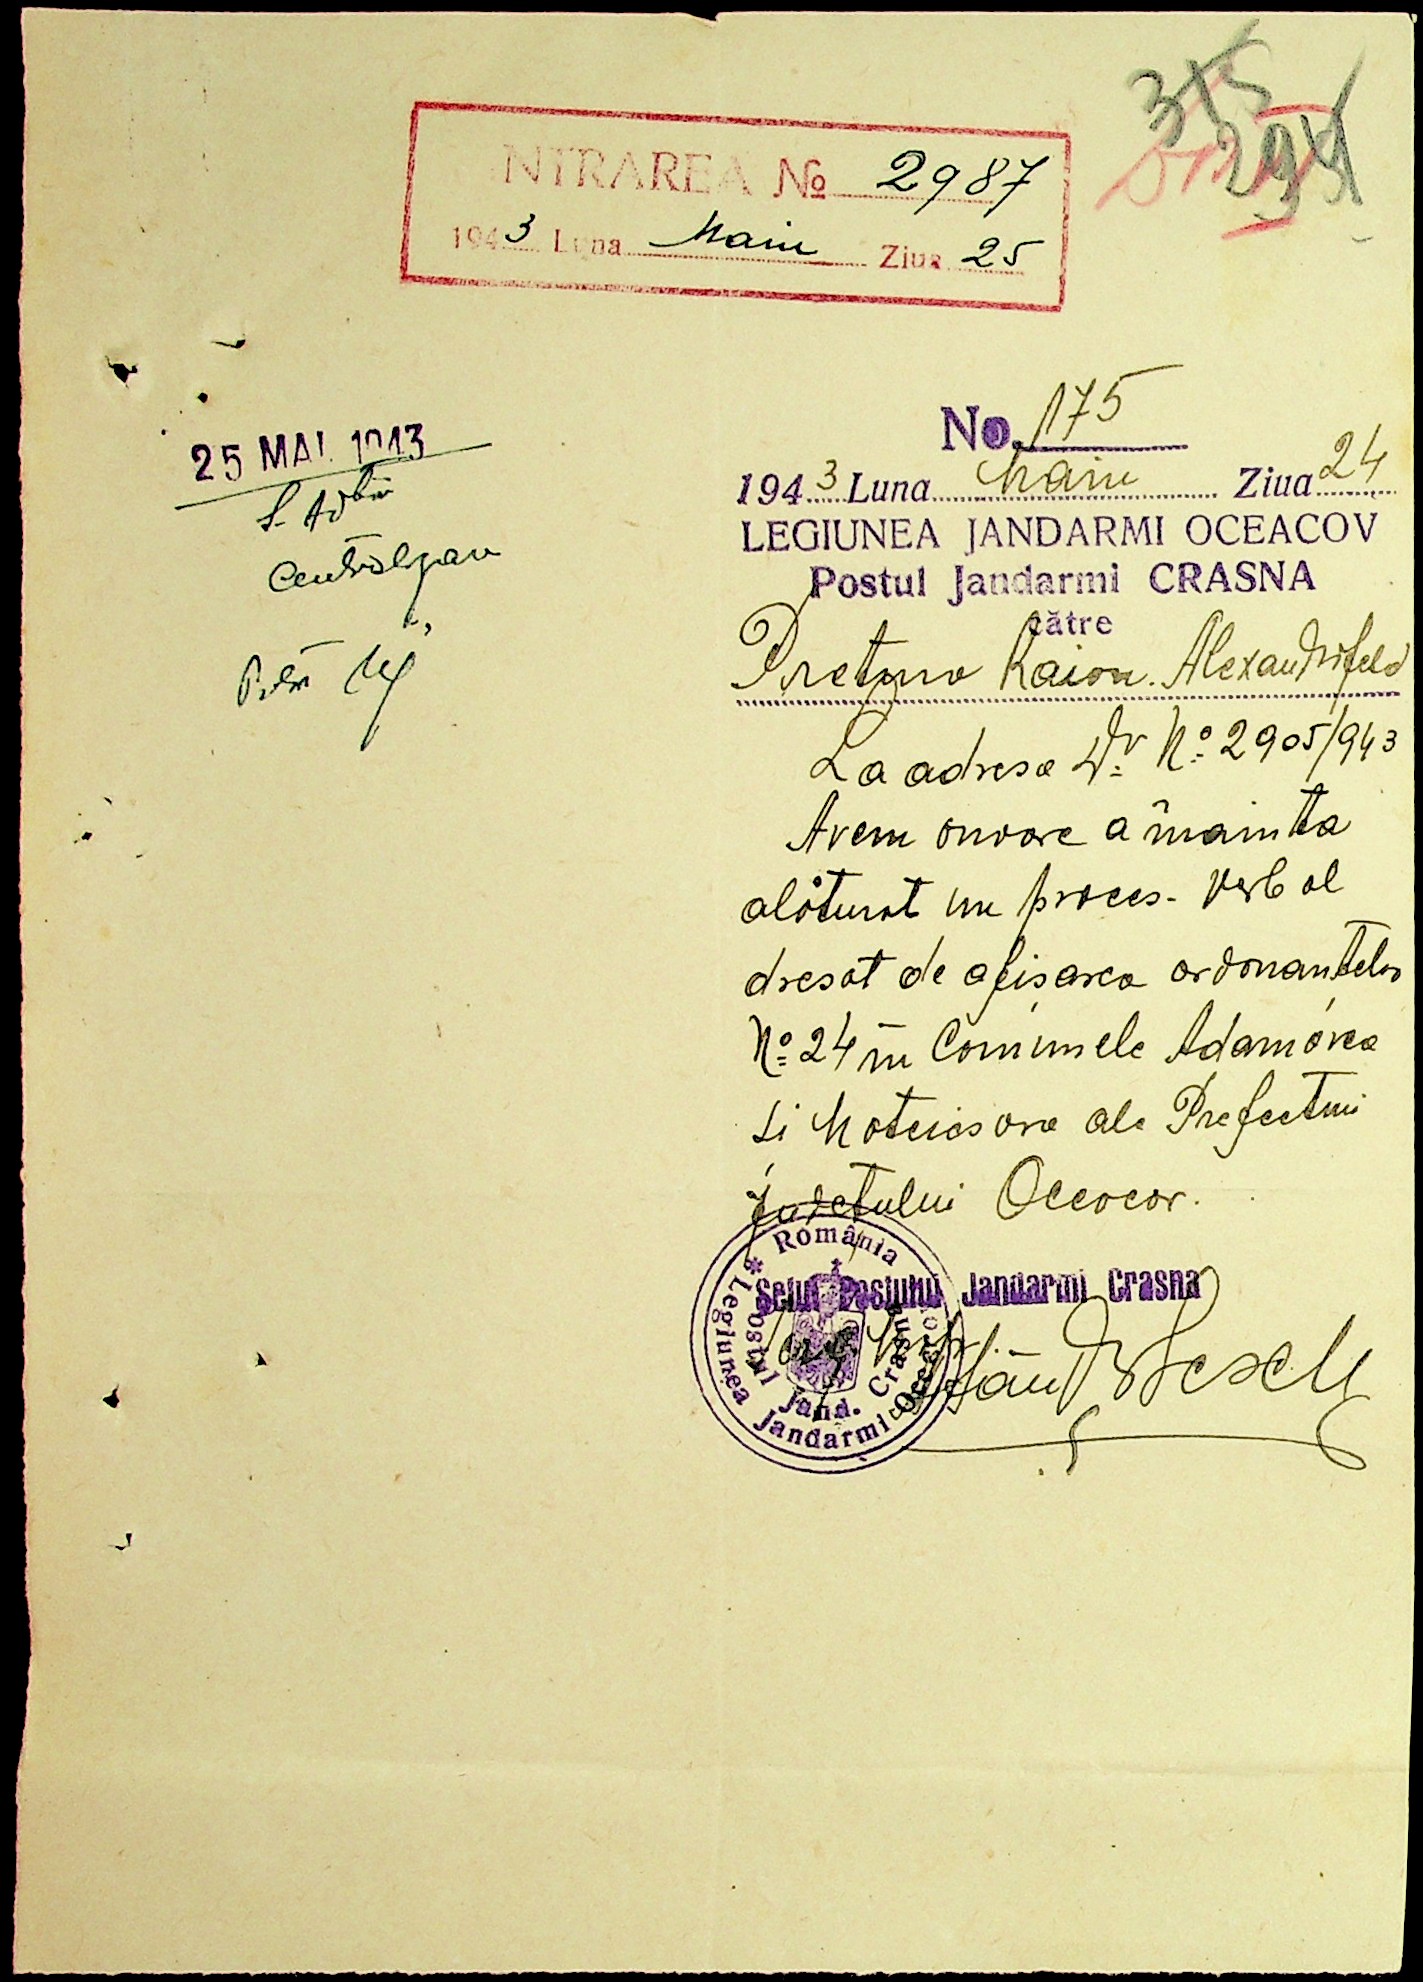 INTRAREA No 2987
1943 Luna Maiu Ziua 25
25 MAI. 1943
S. Ad-tiv
Centralizare
No. 175
1943 Luna Maiu Ziua 24
LEGIUNEA JANDARMI OCEACOV
Postul Jandarmi CRASNA
către
Pretura Raion. Alexandrifeld
La adresa Dv. No. 2905/943
Avem onoare a înainta
alăturat un proces-verbal
dresat de afișarea ordonanțelor
No. 24 în Comunele Adamovca
si Moteiasova ale Prefecturii
Județului Oceacov.
Seful Postului Jandarmi Crasna
România
* Legiunea Jandarmi Oceacov
Postul Jand. Crasna